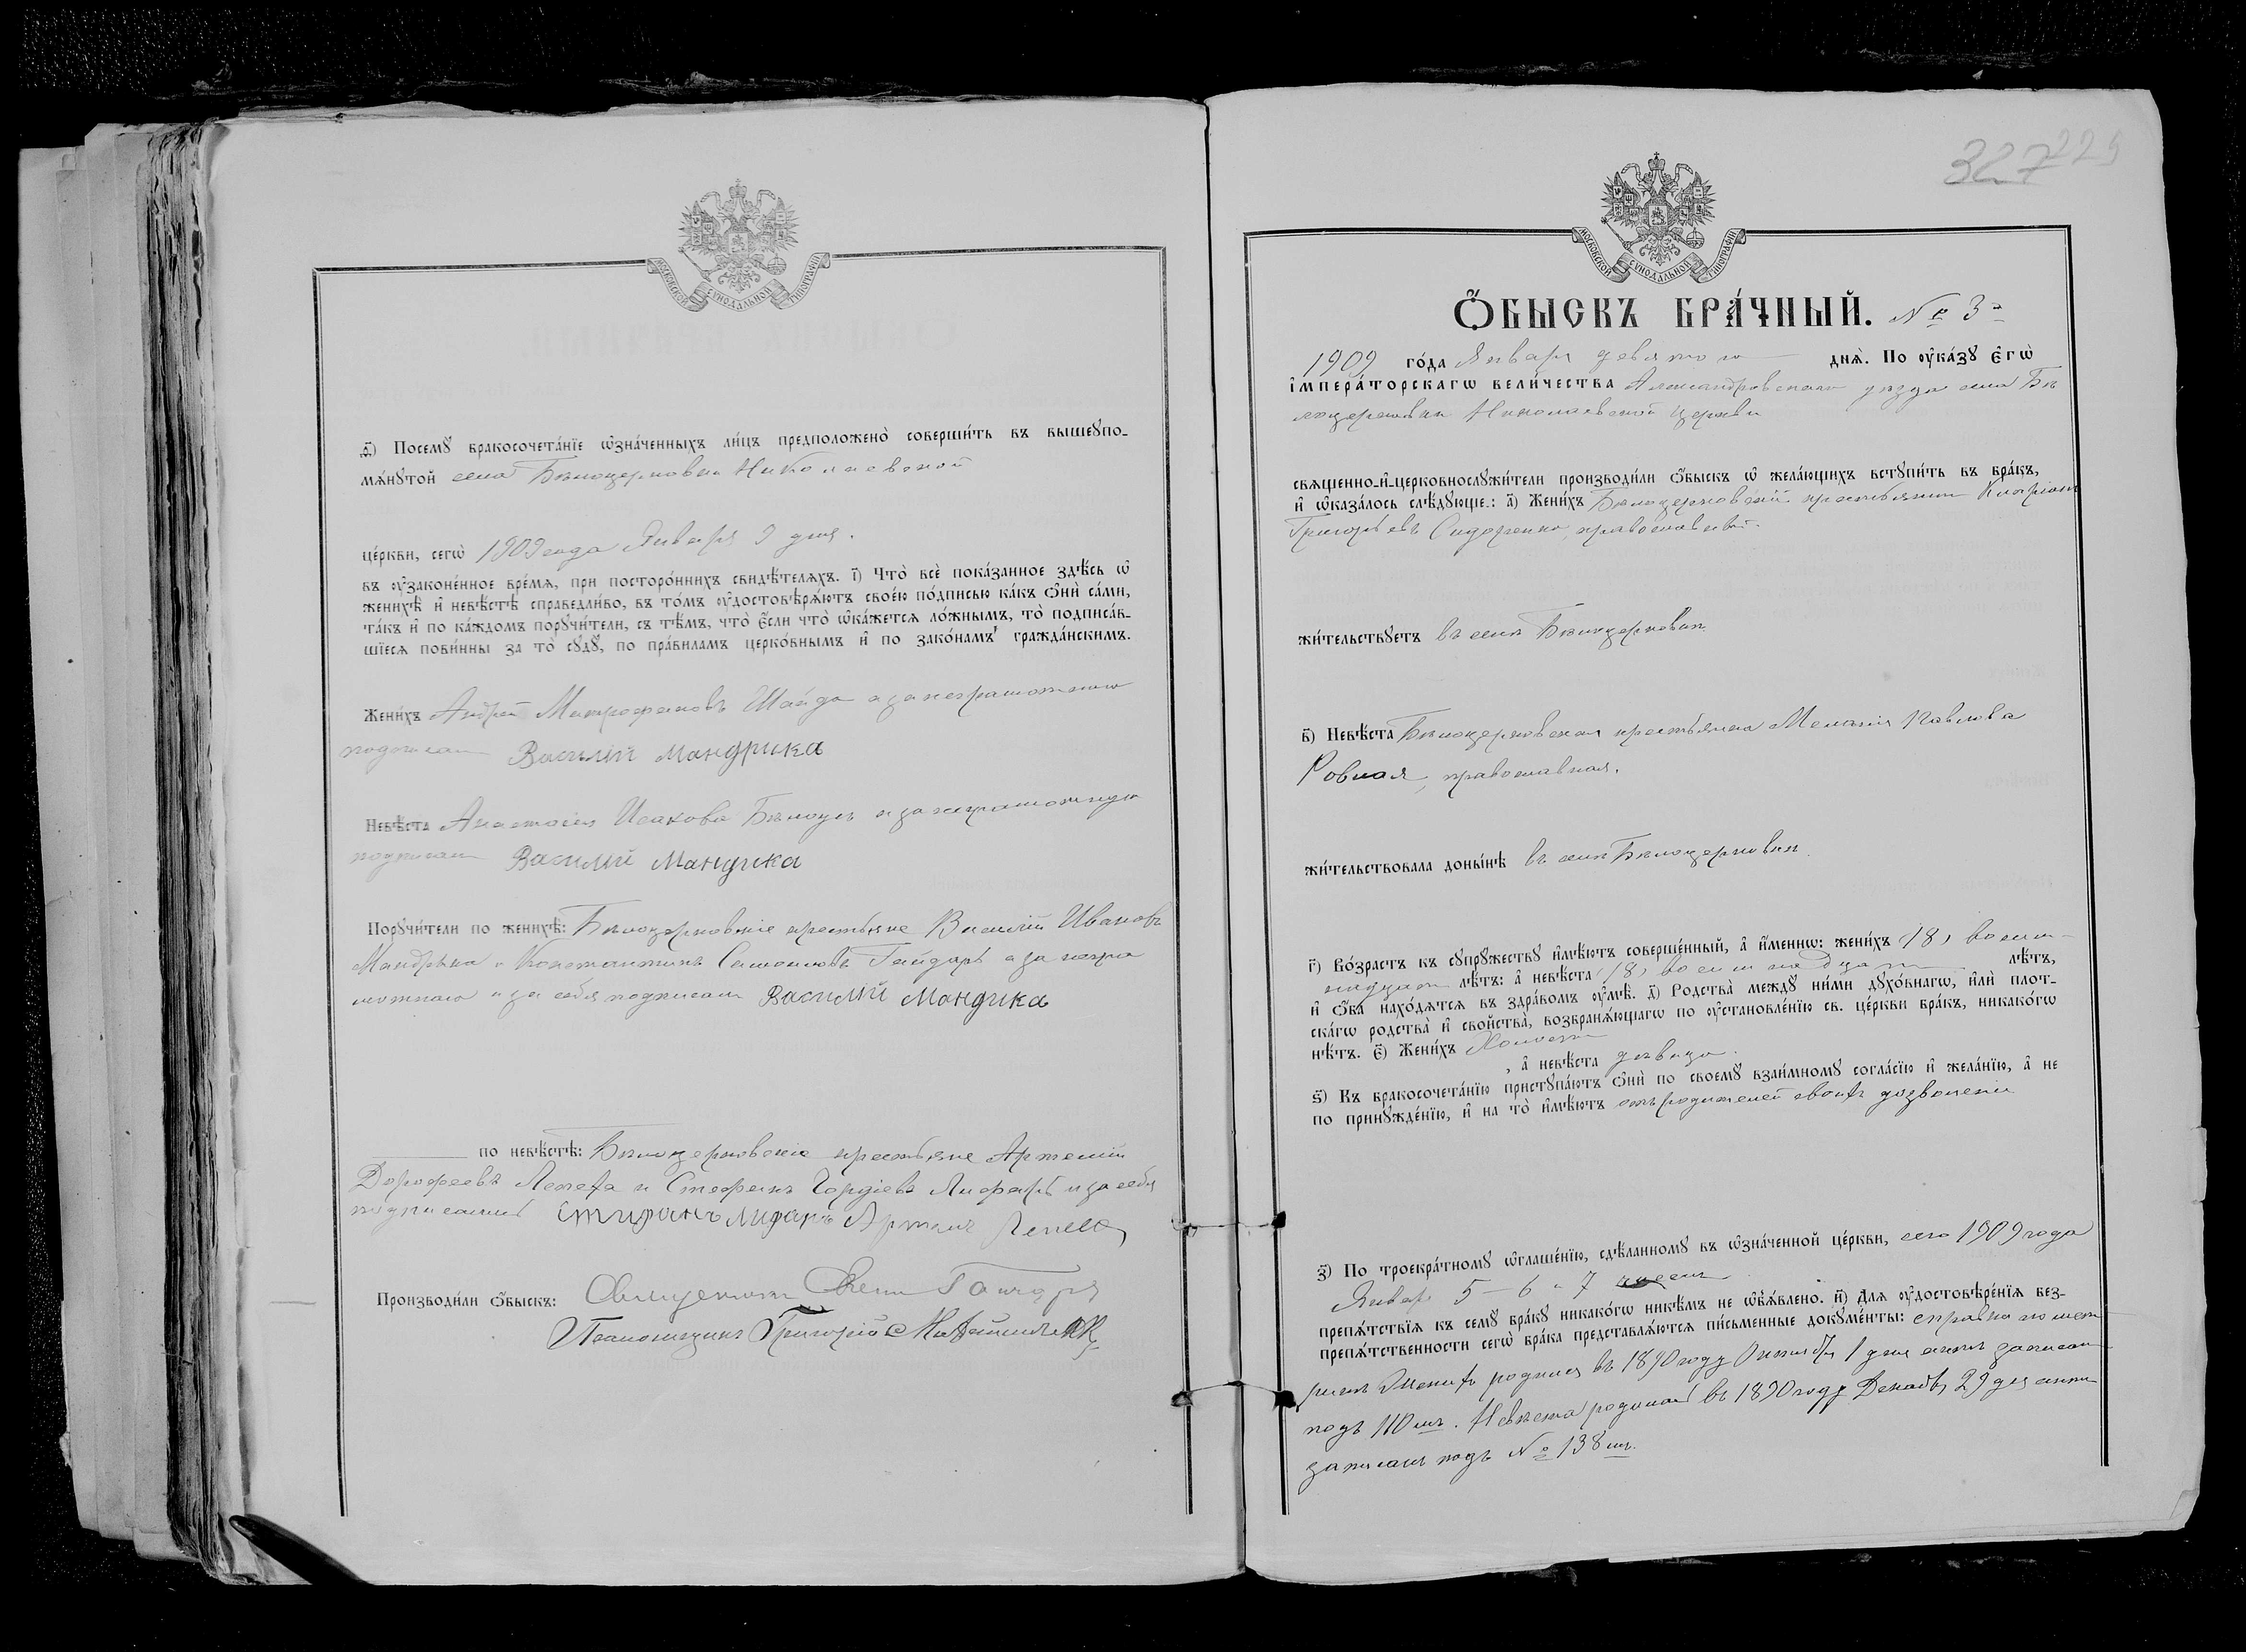 МОСКОВСКОЙ СѴНОДАЛЬНОЙ ТИПОГРАФІИ
ѳ҃) Посемꙋ̀ бракосочета́нїе ѡ҆зна́ченныхъ ли́цъ предположено̀ соверши́ть въ вышеꙋпо-
мѧ́нꙋтой села Бѣлоцерковки Николаевской
це́ркви, сегѡ̀ 1909 года Января 9 дня.
въ ᲂу҆зако́ненное вре́мѧ, при посторо́ннихъ свидѣ́телѧхъ. і҃) Что̀ всѐ пока́занное здѣ́сь ѡ҆
женихѣ̀ и҆ невѣ́стѣ справедли́во, въ то́мъ ᲂу҆достовѣрѧ́ютъ свое́ю по́дписью ка́къ ѻ҆нѝ са́ми,
та́къ и҆ по ка́ждомъ порꙋчи́тели, съ тѣ́мъ, что̀ є҆́сли что̀ ѡ҆ка́жетсѧ ло́жнымъ, то̀ подписа́в-
шїесѧ пови́нны за то̀ сꙋдꙋ̀, по пра́виламъ церко́внымъ и҆ по зако́намъ гражда́нскимъ.
Жени́хъ Андрей Митрофановъ Шайда а за неграмотнаго
подписался Василій Мандрика
Невѣ́ста Анастасія Исакова Бѣлоцъ а за неграмотную
подписался Василій Мандрика
Порꙋчи́тели по женихѣ̀: Бѣлоцерковскіе крестьяне Василій Ивановъ
Мандрыка и Константинъ Самойловъ Гайдарь а за негра
мотнаго и за себя подписался Василій Мандрика
по невѣ́стѣ: Бѣлоцерковскіе крестьяне Артемій
Дорофеевъ Лепеха и Стефанъ Гордіевъ Лифарь и за себя
подписались Стифанъ Лифаръ Артемъ Лепеха
Производи́ли ѻ҆́быскъ: Священникъ
Псаломщикъ Григорій
327 229
МОСКОВСКОЙ СѴНОДАЛЬНОЙ ТИПОГРАФІИ
Ѻ҆́БЫСКЪ БРА́ЧНЫЙ. № 3й
1909 го́да Января девятого днѧ̀. По ᲂу҆ка́зꙋ є҆гѡ̀
і҆мпера́торскагѡ вели́чества Александровскаго уѣзда села Бѣ
лоцерковки Николаевской церкви
свѧще́нно-и҆-церковнослꙋжи́тели производи́ли ѻ҆́быскъ ѡ҆ жела́ющихъ встꙋпи́ть въ бра́къ,
и҆ ѡ҆каза́лось слѣ́дꙋющее: а҃) Жени́хъ Бѣлоцерковскій крестьянинъ Кипріанъ
Григорьевъ Сидоренко, православный.
жи́тельствꙋетъ въ селѣ Бѣлоцерковкѣ.
в҃) Невѣ́ста Бѣлоцерковская крестьянка Меланія Павлова
Ровная, православная.
жи́тельствовала доны́нѣ въ селѣ Бѣлоцерковкѣ.
г҃) Во́зрастъ къ сꙋпрꙋ́жествꙋ и҆мѣ́ютъ соверше́нный, а҆ и҆́меннѡ: жени́хъ (18) восем-
надцать лѣ́тъ: а҆ невѣ́ста (18) восемнадцать лѣ́тъ,
и҆ ѻ҆́ба нахо́дѧтсѧ въ здра́вомъ ᲂу҆мѣ̀. д҃) Родства̀ междꙋ̀ ни́ми дꙋхо́внагѡ, и҆лѝ плот-
ска́гѡ родства̀ и҆ сво́йства̀, возбранѧ́ющагѡ по ᲂу҆становле́нїю св. це́ркви бра́къ, никако́гѡ
нѣ́тъ. є҃) Жени́хъ Холостъ
, а҆ невѣ́ста дѣвица.
ѕ҃) Къ бракосочета́нїю пристꙋпа́ютъ ѻ҆нѝ по своемꙋ̀ взаи́мномꙋ согла́сїю и҆ жела́нїю, а҆ не
по принꙋжде́нїю, и҆ на то̀ и҆мѣ́ютъ отъ родителей своихъ дозволеніе
з҃) По троекра́тномꙋ ѡ҆глаше́нїю, сдѣ́ланномꙋ въ ѡ҆зна́ченной це́ркви, сего 1909 года
Января 5 – 6 и 7
препѧ́тствїѧ къ семꙋ̀ бра́кꙋ никако́гѡ никѣ́мъ не ѡ҆бъѧ́влено. и҃) Длѧ ᲂу҆достовѣре́нїѧ без-
препѧ́тственности сегѡ̀ бра́ка представлѧ́ютсѧ пи́сьменные докꙋме́нты: справка по мет
рикѣ Женихъ родился въ 1890 году Октября 1 дня актъ записанъ
подъ 110 мъ. Невѣста родилась въ 1890 году Декабря 29 дня актъ
записанъ подъ № 138 мъ.